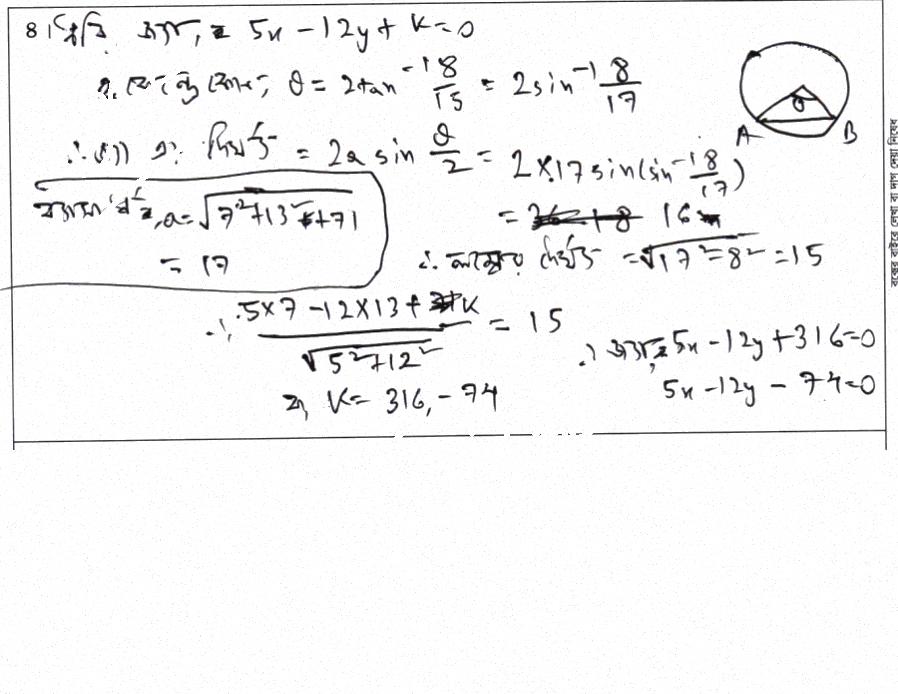 8। ধরি, জ্যা, 5x - 12y + k = 0
θ = 2tan⁻¹ 8/15 = 2sin⁻¹ 8/17
∴ জ্যা এর দৈর্ঘ্য = 2a sin θ/2 = 2×17 sin(sin⁻¹ 8/17)
= 16
ব্যাসার্ধ, a = √7²+13²+71
= 17
∴ লম্বের দৈর্ঘ্য = √17²-8² = 15
∴ 5×7 - 12×13 + k / √5²+12² = 15
বা, k = 316, -74
∴ জ্যা, 5x - 12y + 316 = 0
5x - 12y - 74 = 0
A B θ
বক্সের বাইরে লেখা বা দাগ দেয়া নিষেধ